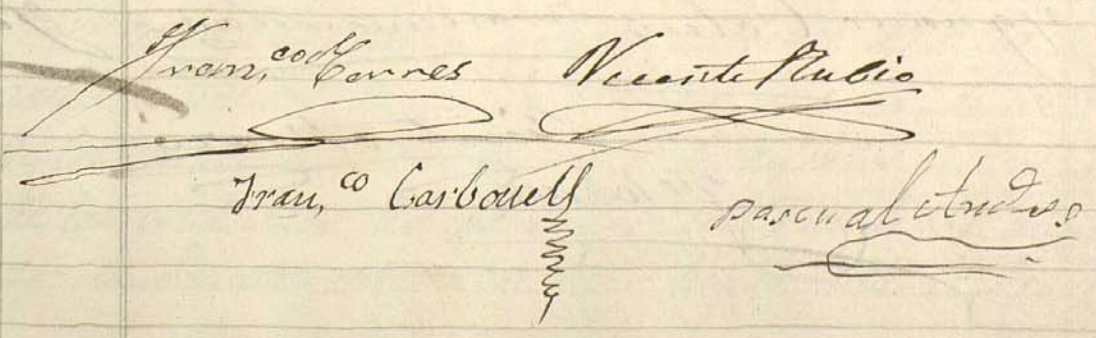 Fran,co Torres Vicente Rubio
Fran,co Carbonell
Pascual Andres